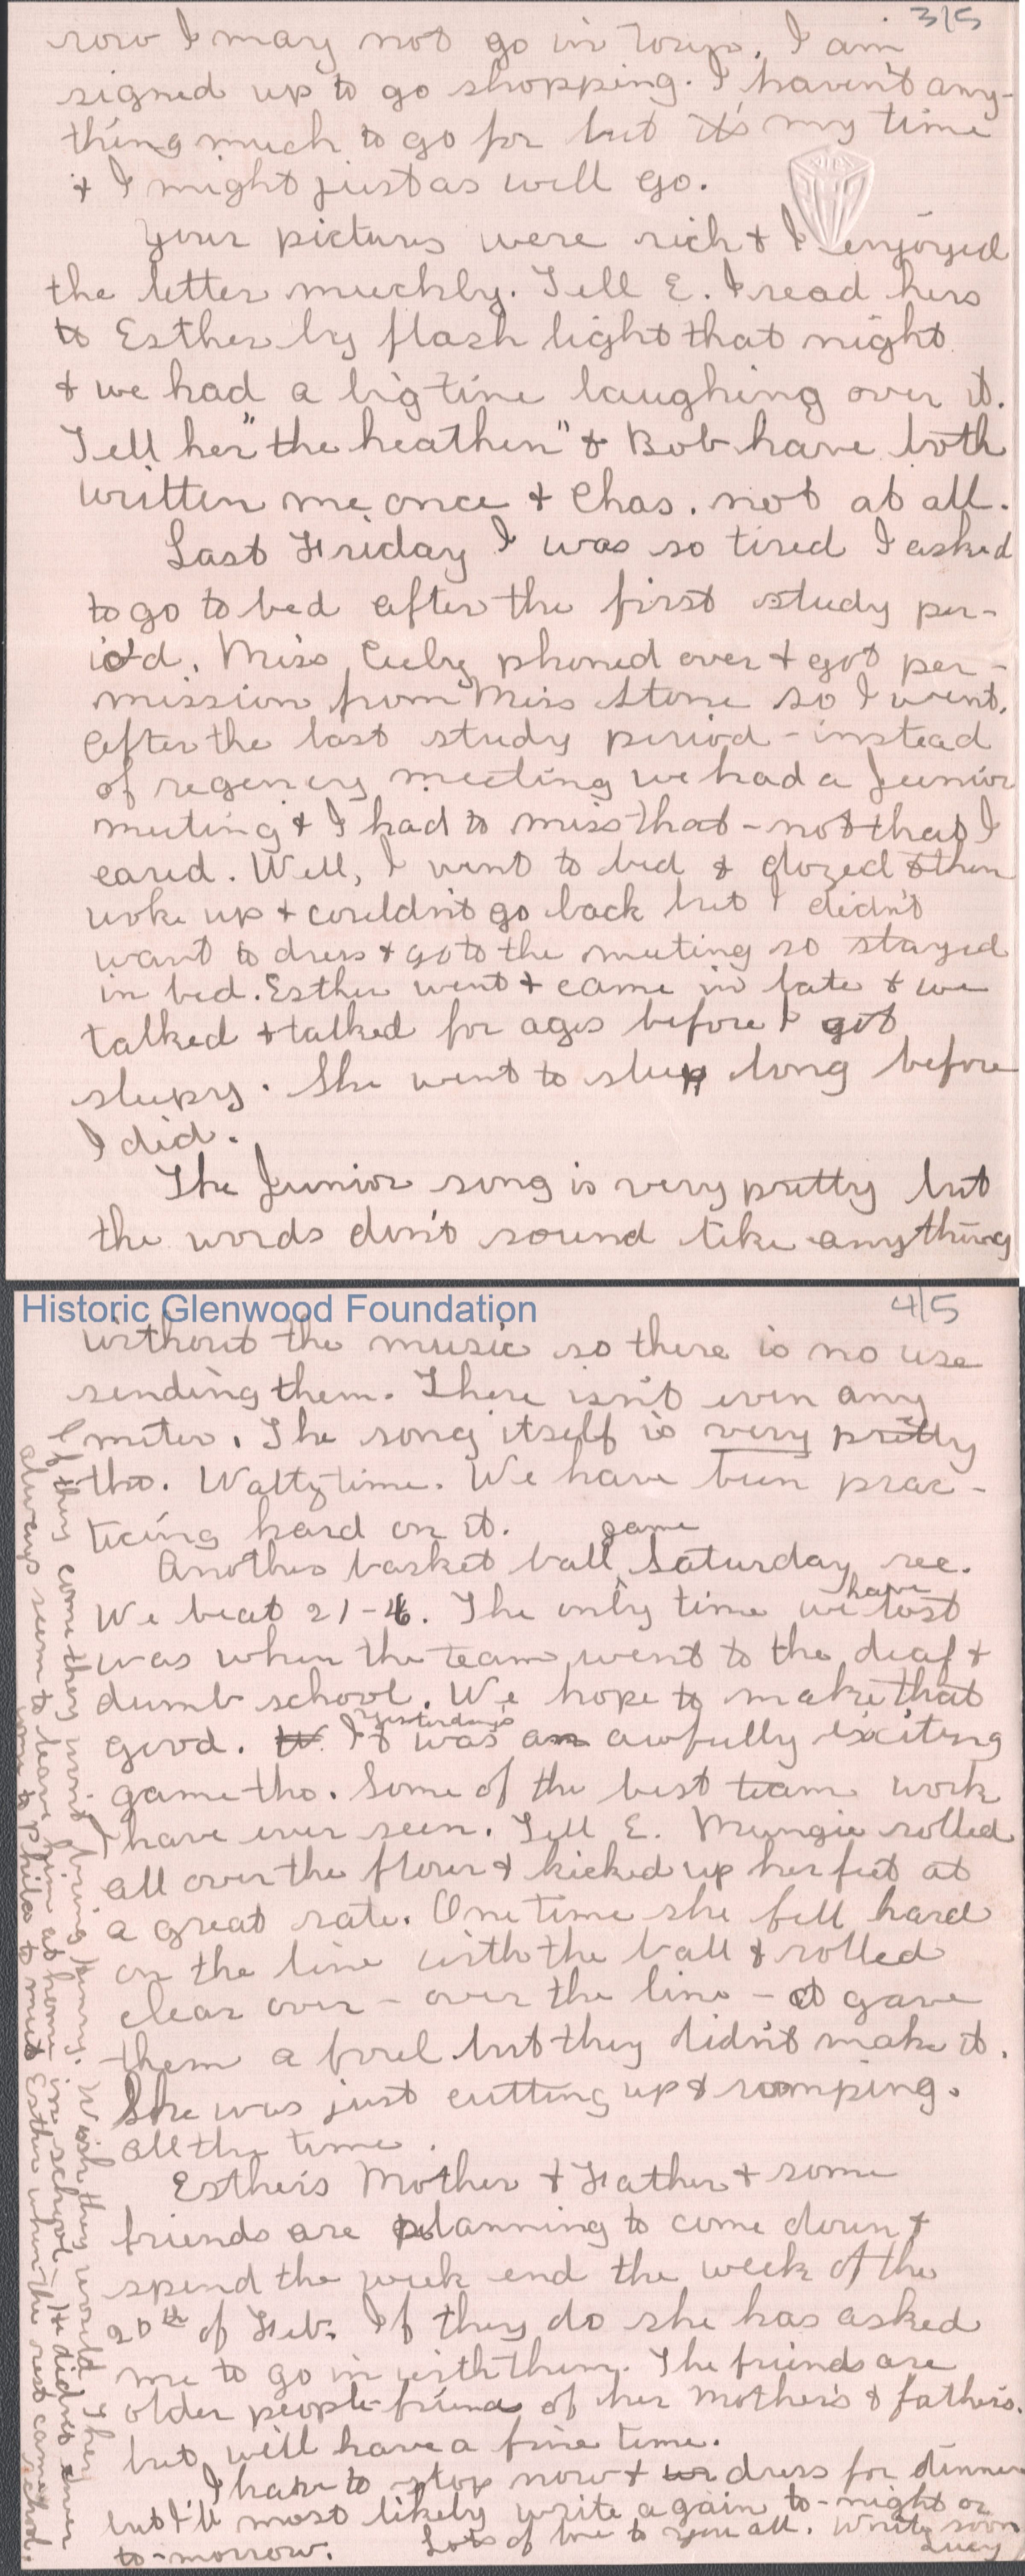 3/5
row I may not go in town. I am
signed up to go shopping. I haven't any-
thing much to go for but it's my time
& I might just as well go.
Your pictures were rich & I enjoyed
the letter muchly. Tell E. I read hers
to Esther by flash light that night
& we had a big time laughing over it.
Tell her "the heathen" & Bob have both
written me once & Chas. not at all.
Last Friday I was so tired I asked
to go to bed after the first study per-
iod. Miss Cuby phoned over & got per-
mission from Miss Stone so I went.
After the last study period - instead
of regency meeting we had a Junior
meeting & I had to miss that - not that I
cared. Well, I went to bed & dozed & then
woke up & couldn't go back but I didn't
want to dress & go to the meeting so stayed
in bed. Esther went & came in late & we
talked & talked for ages before I got
sleepy. She went to sleep long before
I did.
The Junior song is very pretty but
the words don't sound like anything
Historic Glenwood Foundation
4/5
without the music so there is no use
sending them. There isn't even any
meter. The song itself is very pretty
tho. Waltz time. We have been prac-
ticing hard on it.
Another basket ball game Saturday rec.
We beat 21-4. The only time we have lost
was when the team went to the deaf &
dumb school. We hope to make that
good. Yesterday's was an awfully exciting
game tho. Some of the best team work
I have ever seen. Tell E. Mungie rolled
all over the floor & kicked up her feet at
a great rate. One time she fell hard
on the line with the ball & rolled
clear over - over the line - it gave
them a foul but they didn't make it.
She was just cutting up & romping.
all the time.
Esther's Mother & Father & some
friends are planning to come down &
spend the week end the week of the
20th of Feb. If they do she has asked
me to go in with them. The friends are
older people-friends of her Mother's & father's.
but will have a fine time.
I have to stop now & dress for dinner
but I'll most likely write again to-night or
to-morrow. Lots of love to you all. Write soon
Lucy
If they come they won't bring . Wish they would. They
always seem to leave him at home in school. He didn't ever
come to Phila to meet Esther when the rest came
school.